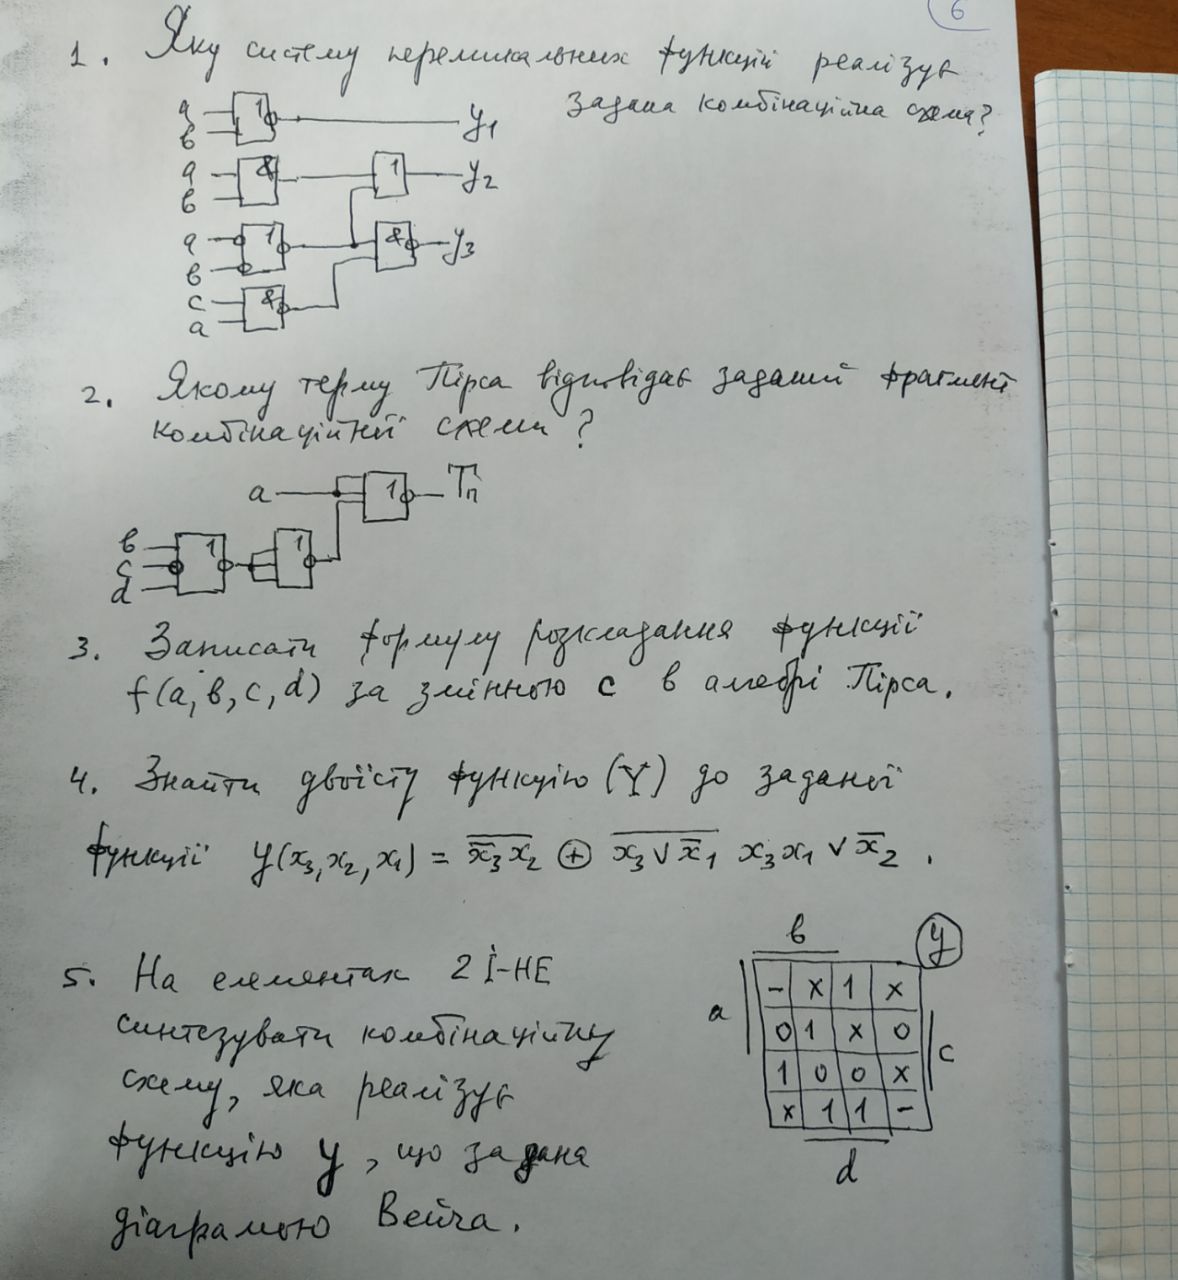 6
1. Яку систему перемикальних функцій реалізує
задана комбінаційна схема?
a 1 y₁
в
a & 1 y₂
в
a 1 & y₃
в
c &
a
2. Якому терму Пірса відповідає заданий фрагмент
комбінаційної схеми?
a 1 Tп
в 1 1
c
d
3. Записати формулу розкладання функції
f(a,в,c,d) за змінною c в алгебрі Пірса.
4. Знайти двоїсту функцію (Y) до заданої
функції y(x₃,x₂,x₁) = x̅₃x₂̅ ⊕ x₃∨x̅₁̅ x₃x₁ ∨ x̅₂ .
5. На елементах 2 І-НЕ
синтезувати комбінаційну
схему, яка реалізує
функцію y, що задана
діаграмою Вейча.
в y
a - x 1 x
0 1 x 0 c
1 0 0 x
x 1 1 -
d